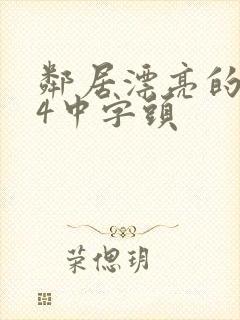 鄰居漂亮的
4中字頭
荣偲玥